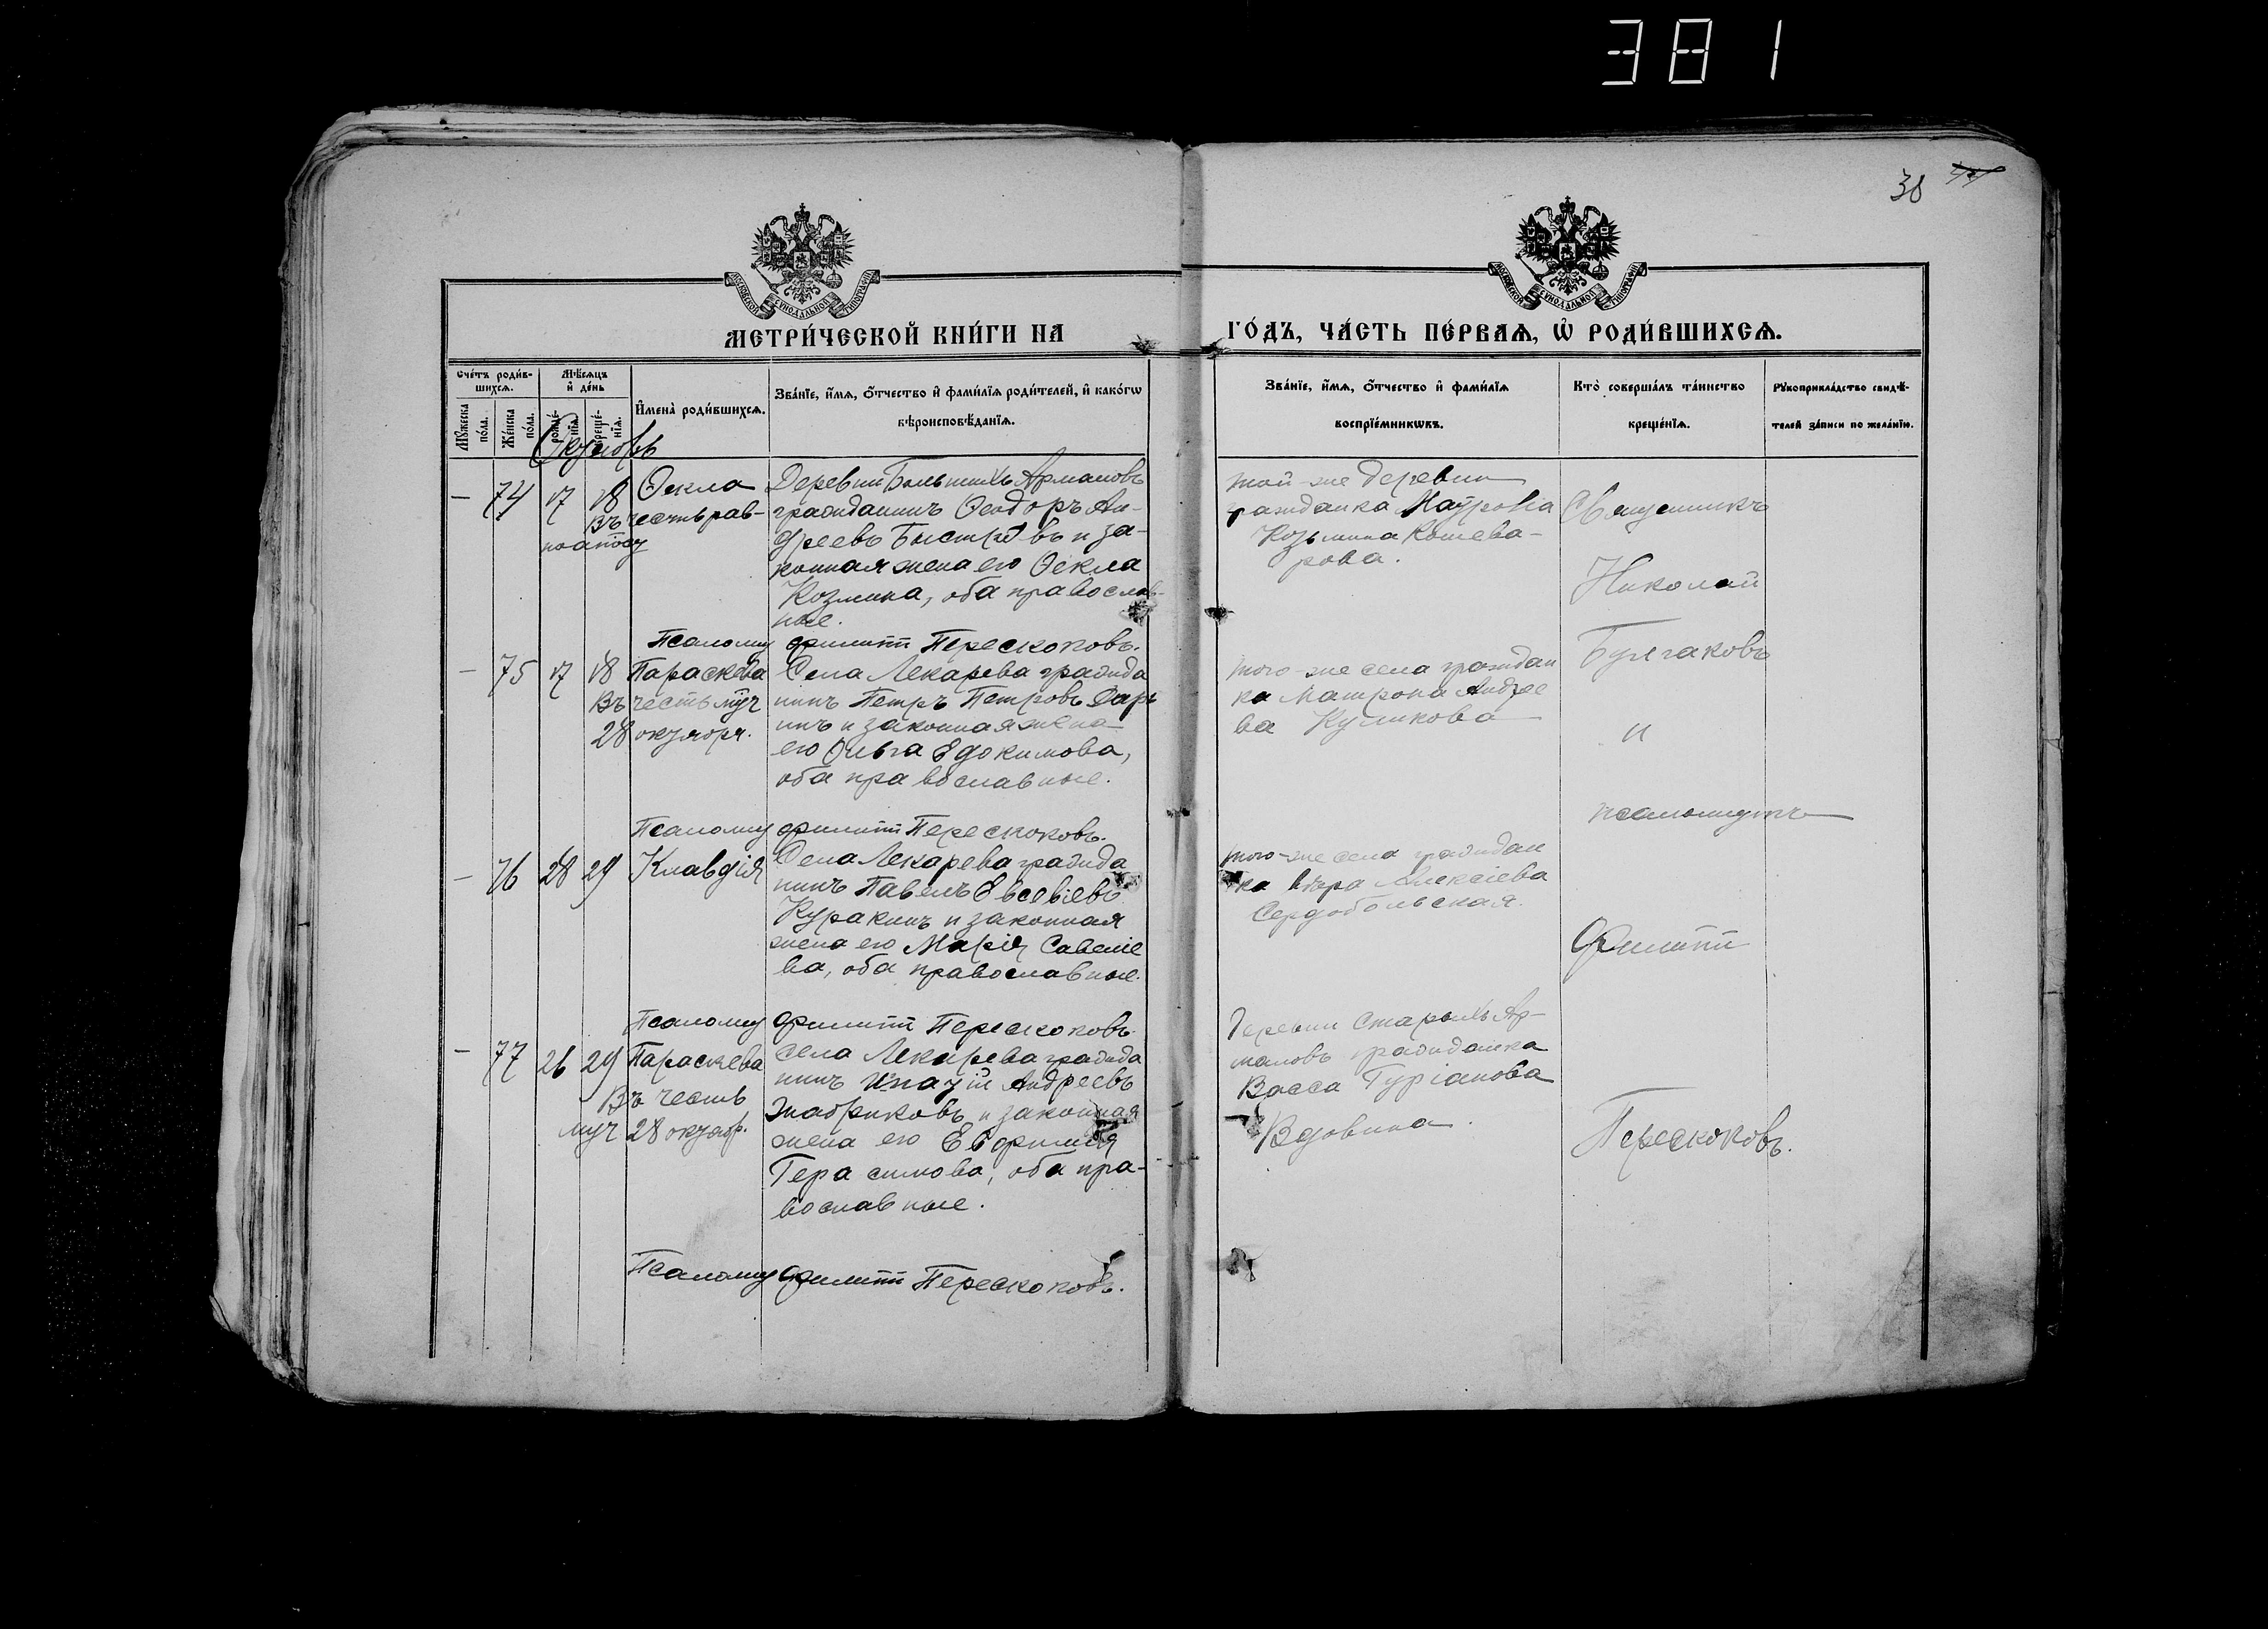 381
38
МОСКОВСКОЙ СѴНОДАЛЬНОЙ ТИПОГРАФІИ
МОСКОВСКОЙ СѴНОДАЛЬНОЙ ТИПОГРАФІИ
МЕТРИ́ЧЕСКОЙ КНИ́ГИ НА ГО́ДЪ, ЧА́СТЬ ПЕ́РВАѦ, Ѡ҆ РОДИ́ВШИХСѦ.
Сче́тъ роди́в-
шихсѧ.
Мꙋ́жеска по́ла.
Же́нска по́ла.
Мѣ́сѧцъ и҆ де́нь
рожде́-
нїѧ.
креще́-
нїѧ.
И҆мена̀ роди́вшихсѧ.
Зва́нїе, и҆́мѧ, ѻ҆́тчество и҆ фами́лїѧ роди́телей, и҆ како́гѡ
вѣроисповѣ́данїѧ.
Зва́нїе, и҆́мѧ, ѻ҆́тчество и҆ фами́лїѧ
воспрїе́мникѡвъ.
Кто̀ соверша́лъ та́инство
креще́нїѧ.
Рꙋкоприкла́дство свидѣ́-
телей за́писи по жела́нїю.
Октябрь
— 74 17 18 Ѳекла
Въ честь рав-
ноапост
Деревни Большихъ Армаловъ
гражданинъ Ѳеодоръ Ан-
дреевъ Быстровъ и за-
конная жена его Ѳекла
Козмина, оба православ-
ные.
той-же деревни
гражданка Мавронія
Козьмина Кошева-
рова.
Священникъ
Николай
Булгаковъ
и
псаломщикъ
Филиппъ
Перескоковъ.
Псаломщ Филиппъ Перескоковъ.
— 75 17 18 Параскева
Въ честь муч
28 октября.
Села Лекарева гражда
нинъ Петръ Петровъ Дарь
инъ и законная жена
его Ольга Едокимова,
оба православные.
того-же села граждан
ка Матрона Андрее
ва Куликова
Псаломщ Филиппъ Перескоковъ.
— 76 28 29 Клавдія
Села Лекарева гражда
нинъ Павелъ Евсевіевъ
Куракинъ и законная
жена его Марія Савеліе
ва, оба православные.
того-же села граждан
ка Вѣра Алексіева
Сердобольская.
Псаломщ Филиппъ Перескоковъ.
— 77 26 29 Параскева
Въ честь
муч 28 октяб.
Села Лекарева гражда
нинъ Игнатій Андреевъ
и законная
жена его Евфимія
Герасимова, оба пра-
вославные.
Деревни Старыхъ Ар-
маловъ гражданка
Васса Гуріанова
Вдовина.
Псаломщ Филиппъ Перескоковъ.